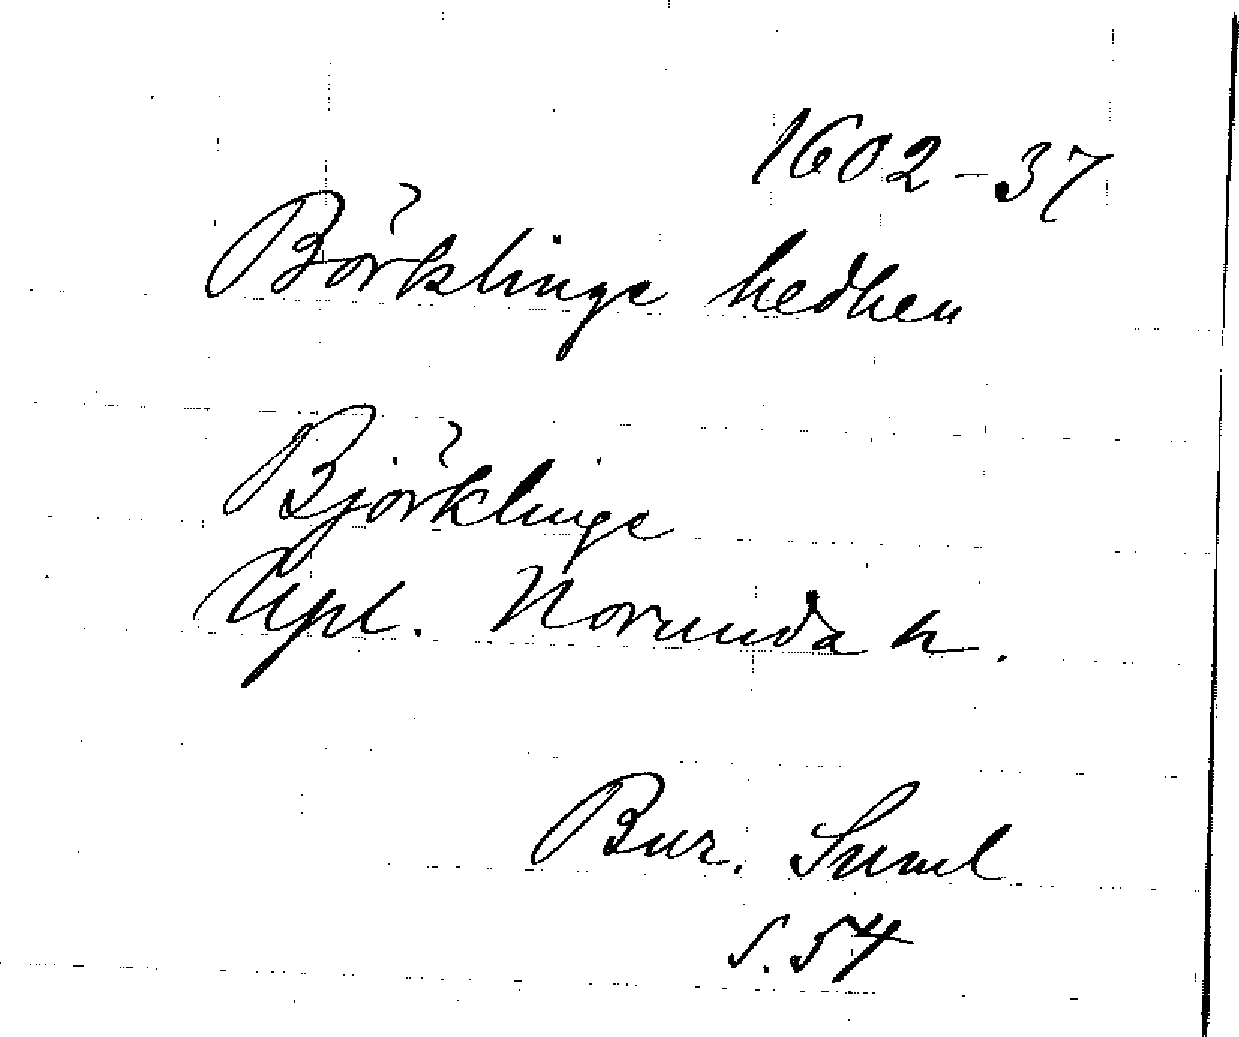 1602-37
Börklinge hedhen
Björklinge
Upl. Norunda h.
Bur. Suml
s. 54